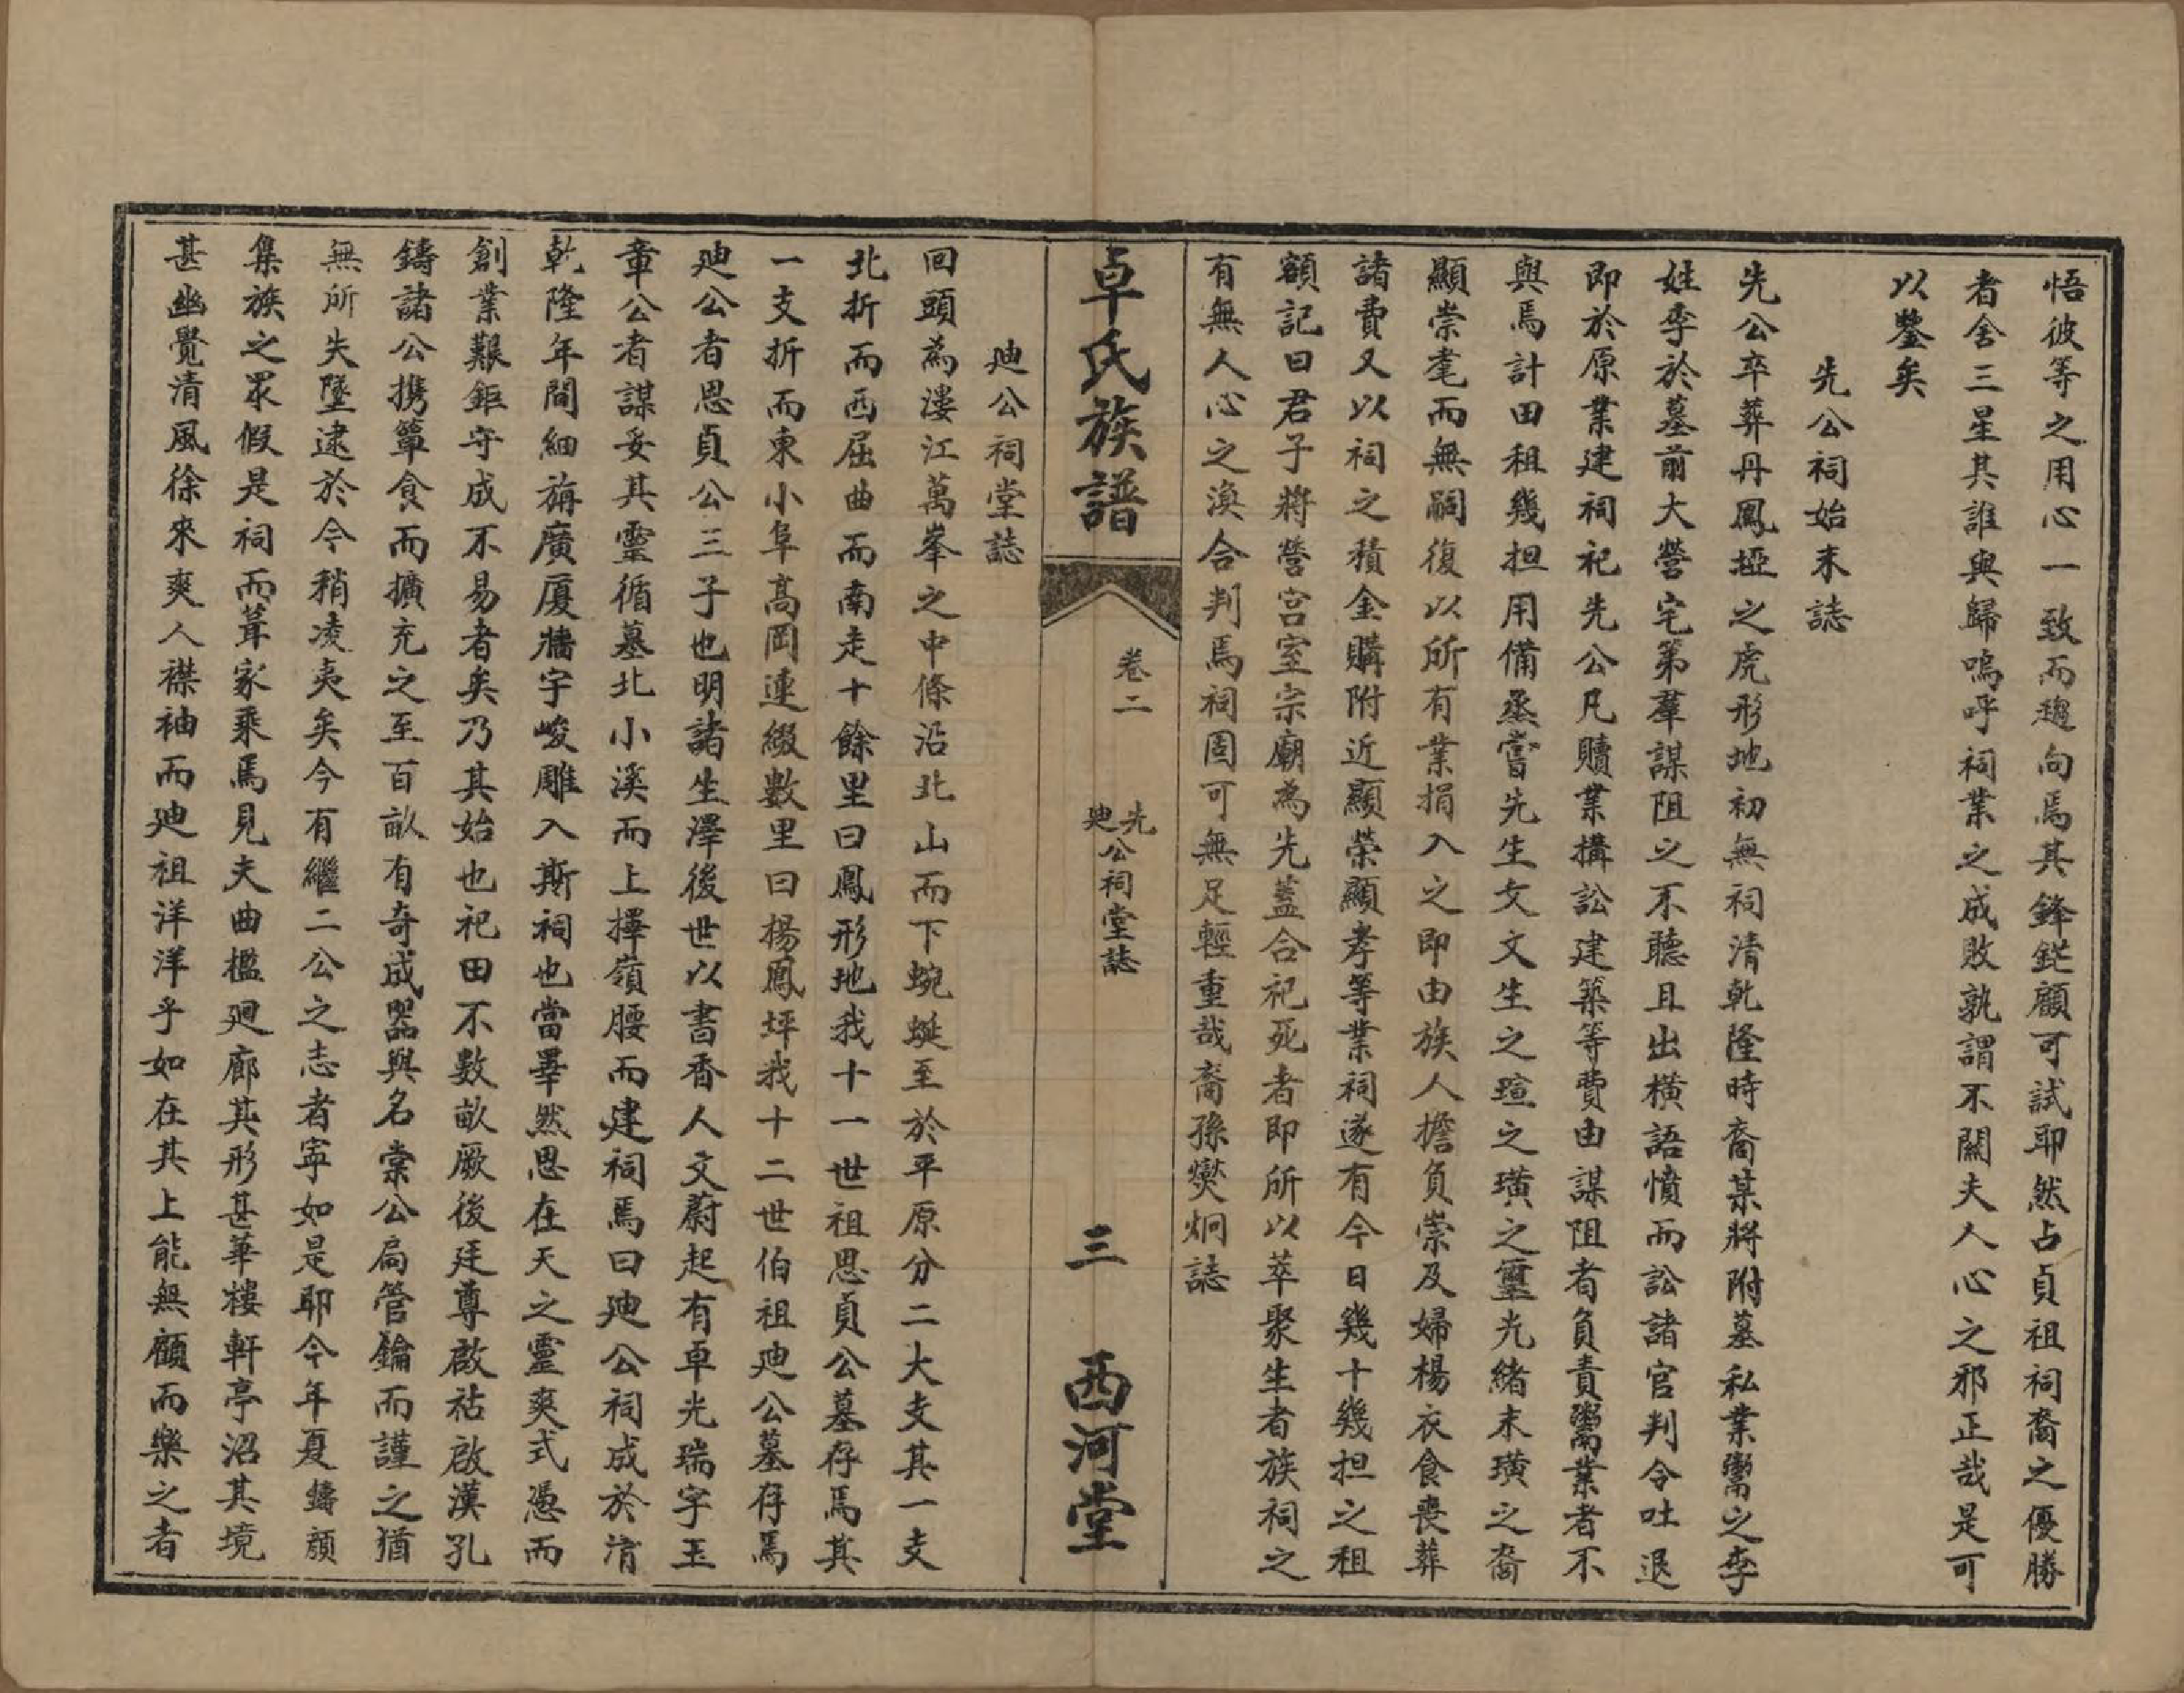 悟彼等之用心一致而趨向焉其鋒鋩顧可試耶然占貞祖祠裔之優勝
者舍三星其誰與歸嗚呼祠業之成敗孰謂不關夫人心之邪正哉是可
以鑒矣
先公祠始末誌
先公卒葬丹鳳埡之虎形地初無祠清乾隆時裔某將附墓私業鬻之李
姓李於墓前大營宅第羣謀阻之不聽且出橫語憤而訟諸官判令吐退
即於原業建祠祀先公凡贖業搆訟建築等費由謀阻者負責鬻業者不
與焉計田租幾担用備烝嘗先生文文生之瑄之璜之靈光緒末璜之裔
顯崇耄而無嗣復以所有業捐入之即由族人擔負崇及婦楊衣食喪葬
諸費又以祠之積金購附近顯榮顯孝等業祠遂有今日幾十幾担之租
額記曰君子將營宮室宗廟為先蓋合祀死者即所以萃聚生者族祠之
有無人心之渙合判焉祠固可無足輕重哉裔孫爕炯誌
卓氏族譜
卷二
先廸公祠堂誌
三
西河堂
廸公祠堂誌
回頭為漊江萬峯之中條沿北山而下蜿蜒至於平原分二大支其一支
北折而西屈曲而南走十餘里曰鳳形地我十一世祖思貞公墓存焉其
一支折而東小阜高岡連綴數里曰楊鳳坪我十二世伯祖廸公墓存焉
廸公者思貞公三子也明諸生澤後世以書香人文蔚起有卓光瑞字玉
章公者謀妥其靈循墓北小溪而上擇嶺腰而建祠焉曰廸公祠成於清
乾隆年間細旃廣廈牆宇峻雕入斯祠也當畢然思在天之靈爽式憑而
創業艱鉅守成不易者矣乃其始也祀田不數畝厥後廷尊啟祜啟漢孔
鑄諸公携簞食而擴充之至百畝有奇成器與名棠公扃管鑰而謹之猶
無所失墜逮於今稍凌夷矣今有繼二公之志者寧如是耶今年夏鑄顏
集族之眾假是祠而葺家乘焉見夫曲檻廻廊其形甚華樓軒亭沼其境
甚幽覺清風徐來爽人襟袖而廸祖洋洋乎如在其上能無顧而樂之者